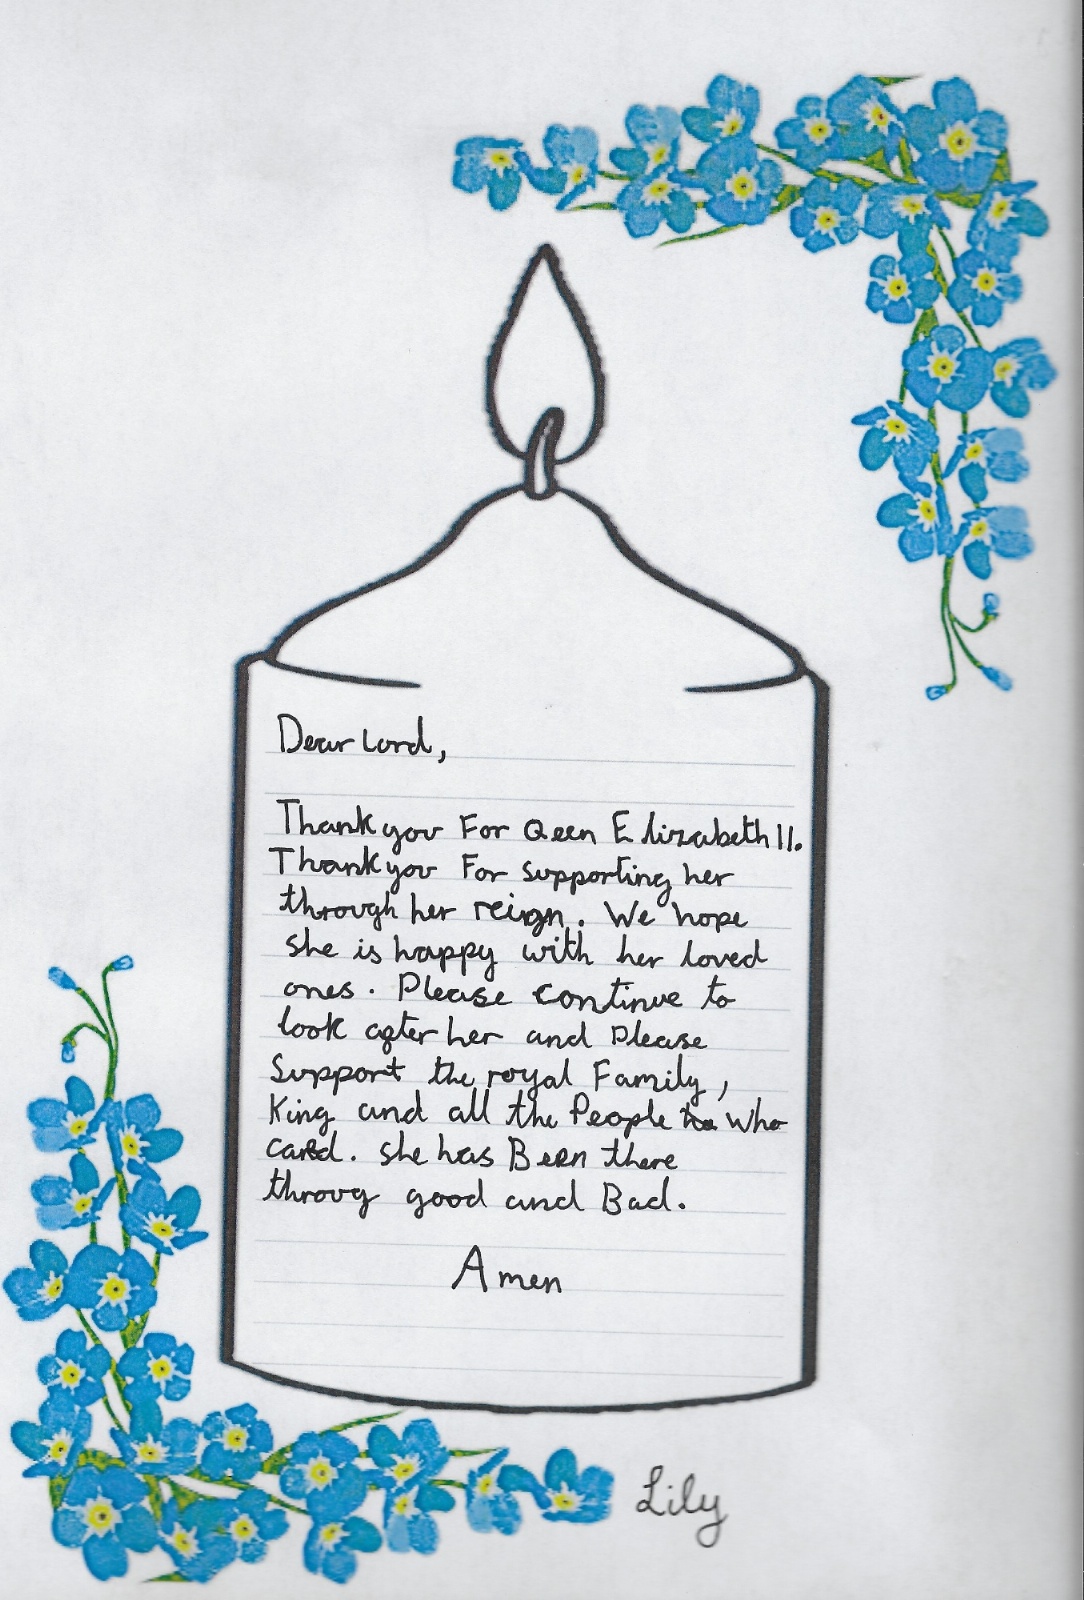 Dear Lord,
Thank you For Qeen Elizabeth II.
Thank you For supporting her
through her reign. We hope
she is happy with her loved
ones. Please continue to
look after her and Please
Support the royal Family,
King and all the People who
cared. she has Been there
throug good and Bad.
Amen
Lily